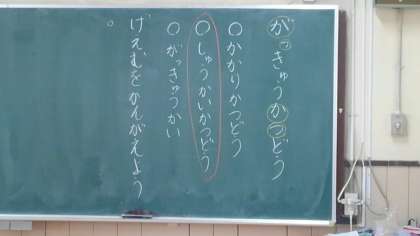 がっきゅうかつどう
○かかりかつどう
○しゅうかいかつどう
○がっきゅうかい
げえむをかんがえよう
。